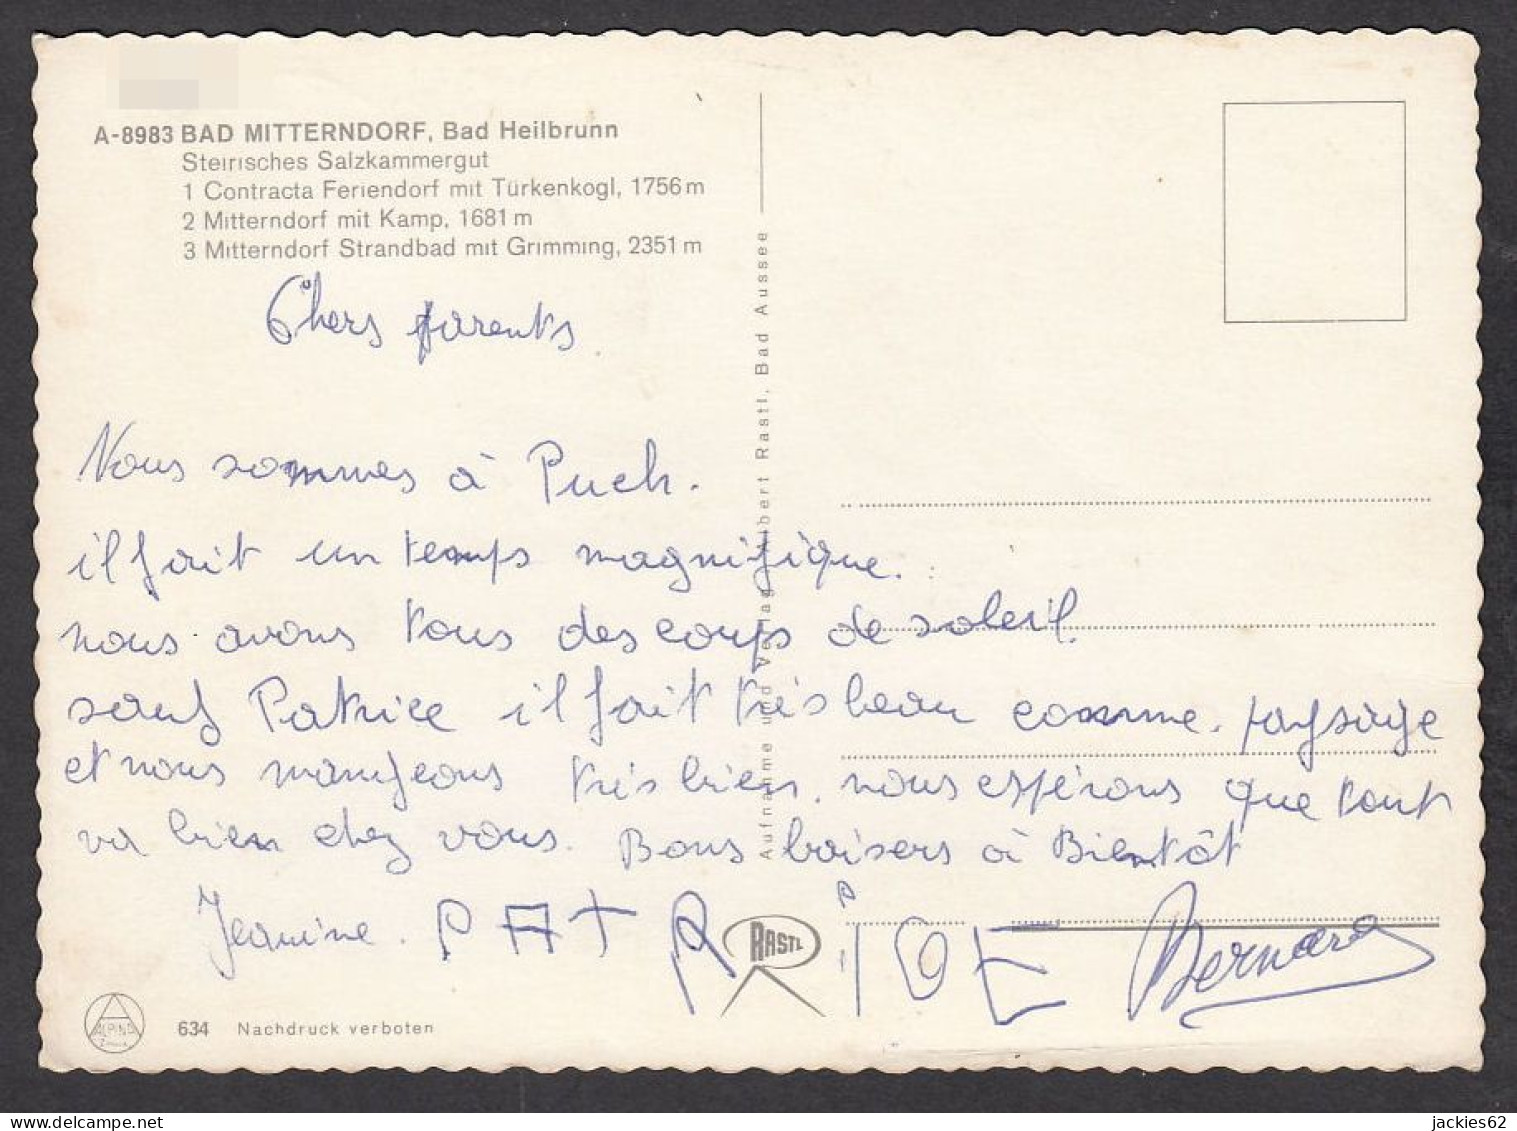 A-8983 BAD MITTERNDORF, Bad Heilbrunn
Steirisches Salzkammergut
1 Contracta Feriendorf mit Türkenkogl, 1756 m
2 Mitterndorf mit Kamp, 1681 m
3 Mitterndorf Strandbad mit Grimming, 2351 m
Chers parents
Nous sommes à Puch.
il fait un temps magnifique.
nous avons tous des coups de soleil.
sauf Patrice il fait très beau comme paysage
et nous mangeons très bien. nous espérons que tout
va bien chez vous. Bons baisers à Bientôt
Jeanine. PATRICE Bernard
Aufnahme und Verlag Albert Rastl, Bad Aussee
RASTL
ALPINA
634 Nachdruck verboten
jackies62